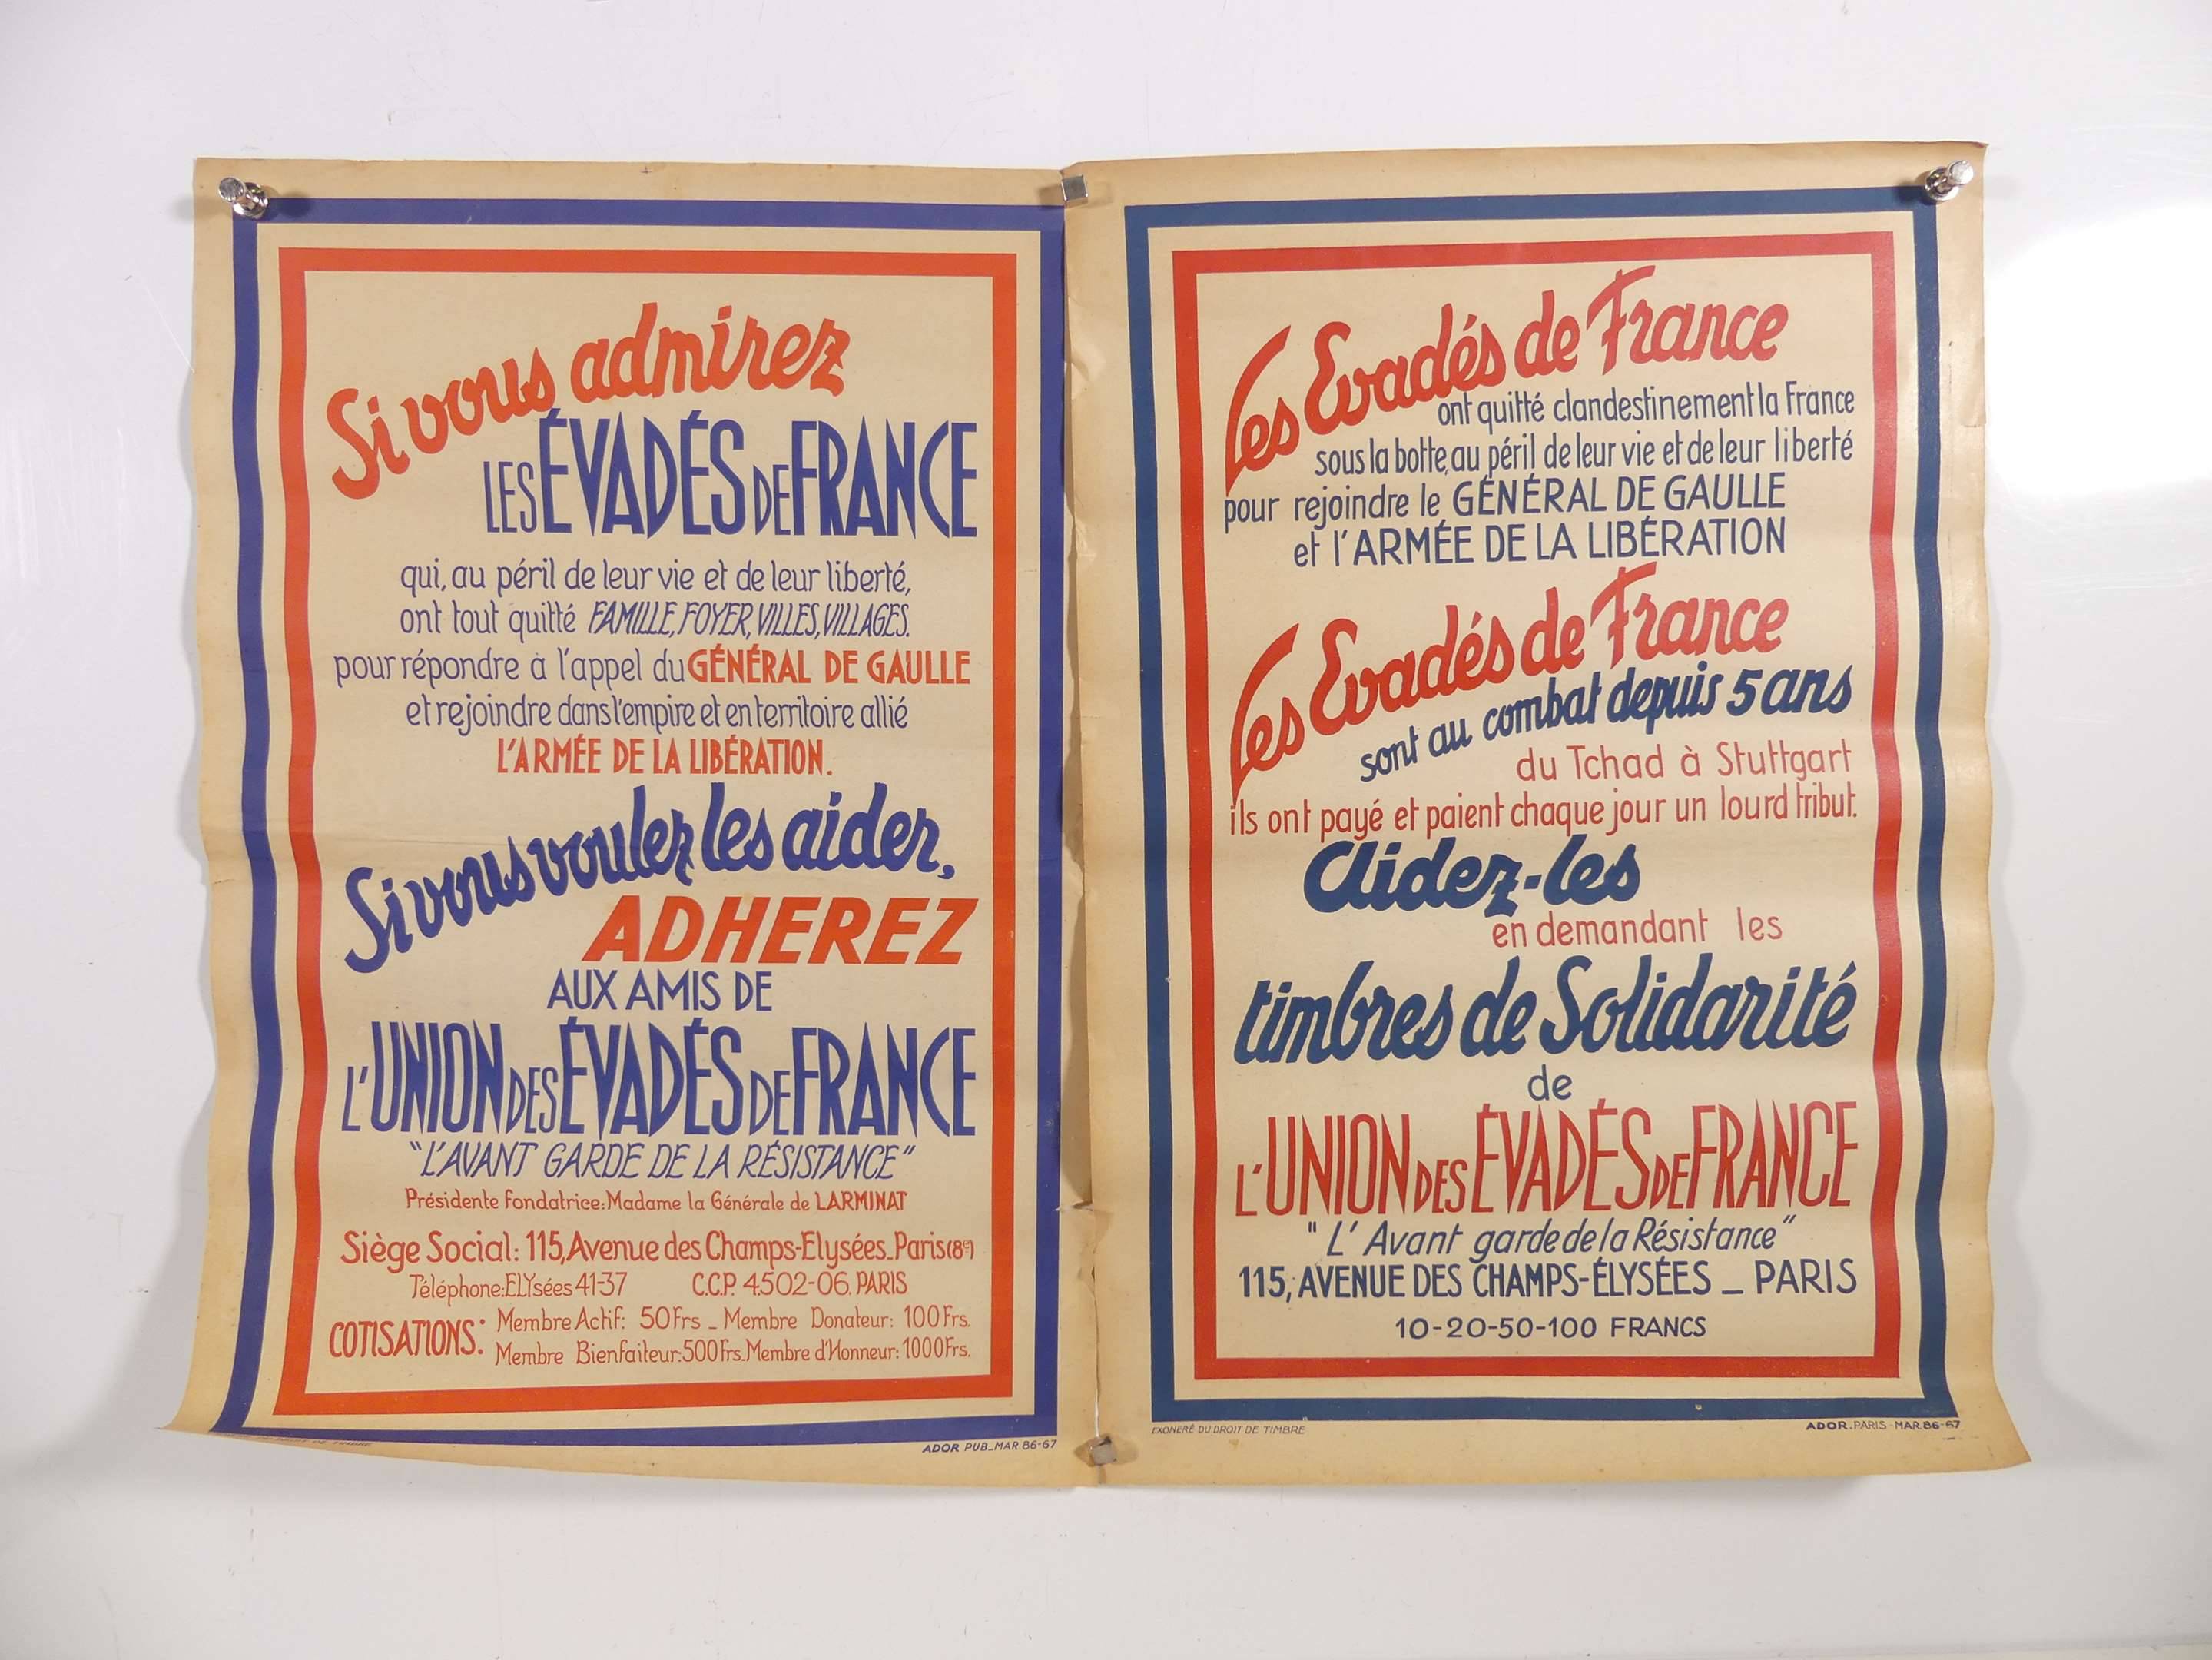 Si vous admirez
LES ÉVADÉS DE FRANCE
qui, au péril de leur vie et de leur liberté,
ont tout quitté FAMILLE, FOYER, VILLES, VILLAGES.
pour répondre à l'appel du GÉNÉRAL DE GAULLE
et rejoindre dans l'empire et en territoire allié
L'ARMÉE DE LA LIBÉRATION.
Si vous voulez les aider,
ADHEREZ
AUX AMIS DE
L'UNION DES ÉVADÉS DE FRANCE
"L'AVANT GARDE DE LA RÉSISTANCE"
Présidente Fondatrice: Madame la Générale de LARMINAT
Siège Social: 115, Avenue des Champs-Elysées_Paris (8e)
Téléphone: ELYsées 41-37 C.C.P. 4.502-06. PARIS
COTISATIONS: Membre Actif: 50 Frs _ Membre Donateur: 100 Frs.
Membre Bienfaiteur: 500 Frs. Membre d'Honneur: 1000 Frs.
ADOR PUB_MAR 86-67
Les Evadés de France
ont quitté clandestinement la France
sous la botte, au péril de leur vie et de leur liberté
pour rejoindre le GÉNÉRAL DE GAULLE
et l'ARMÉE DE LA LIBÉRATION
Les Evadés de France
sont au combat depuis 5 ans
du Tchad à Stuttgart
ils ont payé et paient chaque jour un lourd tribut.
Aidez-les
en demandant les
timbres de Solidarité
de
L'UNION DES ÉVADÉS DE FRANCE
"L'Avant garde de la Résistance"
115, AVENUE DES CHAMPS-ÉLYSÉES _ PARIS
10-20-50-100 FRANCS
EXONERÉ DU DROIT DE TIMBRE
ADOR. PARIS - MAR. 86-67